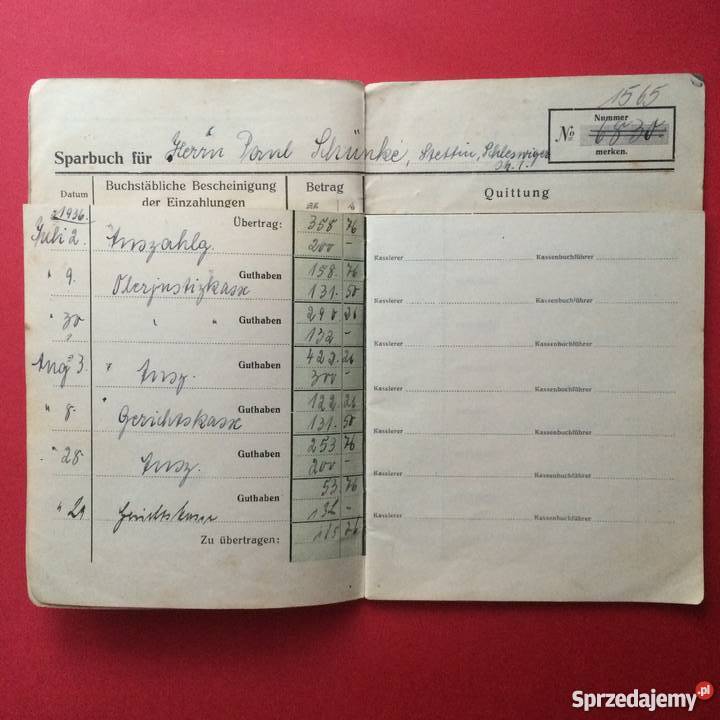 1565
Nummer
Sparbuch für Herrn Paul Schünke, Stettin, Schleswiger № 6830. merken.
Datum Buchstäbliche Bescheinigung der Einzahlungen Betrag Quittung
1936. Übertrag: 358 76
Juli 2. Auszahlg. 200 —
Guthaben 158. 76 Kassierer Kassenbuchführer
" 9. Oberjustizkasse 131. 50
Guthaben 290 26 Kassierer Kassenbuchführer
" 30 " " 132 —
Guthaben 422. 26 Kassierer Kassenbuchführer
Aug. 3. " Ausz. 300 —
Guthaben 122. 26 Kassierer Kassenbuchführer
" 8. " Gerichtskasse 131. 50
Guthaben 253 76 Kassierer Kassenbuchführer
" 28 Ausz. 200 —
Guthaben 53. 76 Kassierer Kassenbuchführer
" Gerichtskasse 132 —
Zu übertragen: 185 76 Kassierer Kassenbuchführer
Sprzedajemy.pl